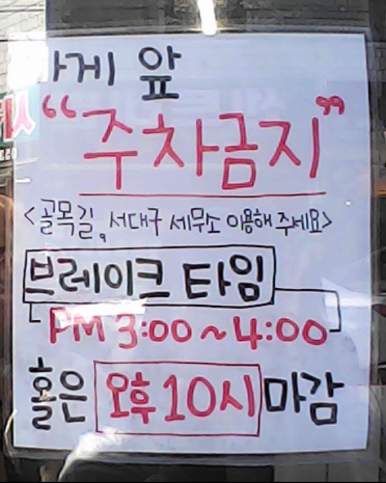 가게 앞
“주차금지”
<골목길, 서대구 세무소 이용해 주세요>
브레이크 타임
PM 3:00 ~ 4:00
홀은 오후 10시 마감